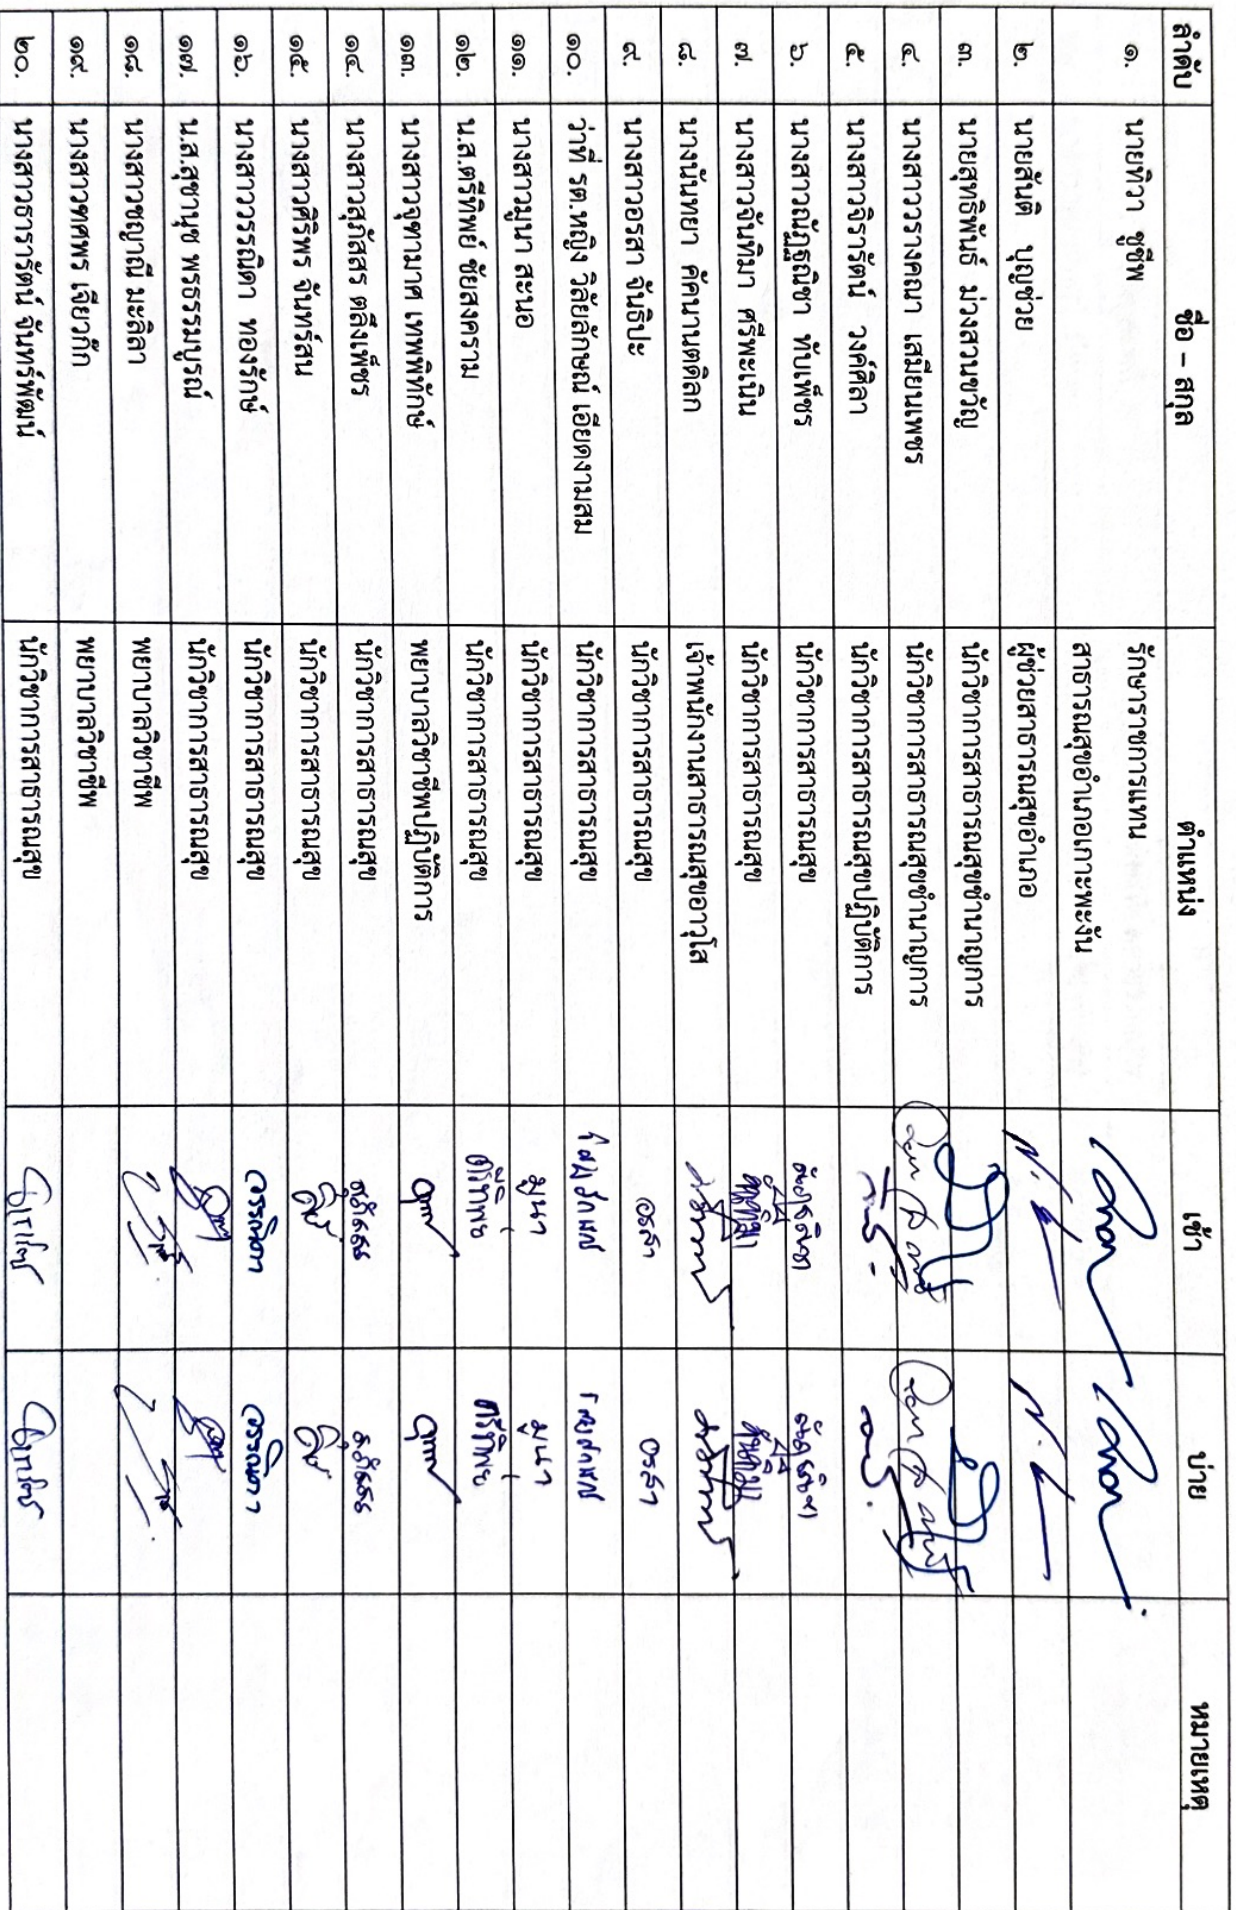 ลำดับ ชื่อ – สกุล ตำแหน่ง เช้า บ่าย หมายเหตุ
๑. นายทิวา ชูชีพ รักษาราชการแทน
สาธารณสุขอำเภอเกาะพะงัน
๒. นายสันติ บุญช่วย ผู้ช่วยสาธารณสุขอำเภอ
๓. นายสุทธิพันธ์ ม่วงสวนขวัญ นักวิชาการสาธารณสุขชำนาญการ
๔. นางสาววรางคณา เสมียนเพชร นักวิชาการสาธารณสุขชำนาญการ
๕. นางสาวจิรารัตน์ วงศ์ศิลา นักวิชาการสาธารณสุขปฏิบัติการ
๖. นางสาวณัฏฐณิชา ทับเพ็ชร นักวิชาการสาธารณสุข
๗. นางสาวจันทิมา ศรีพะเนิน นักวิชาการสาธารณสุข
๘. นางนันทยา คัคนานตดิลก เจ้าพนักงานสาธารณสุขอาวุโส
๙. นางสาวอรสา จันธิปะ นักวิชาการสาธารณสุข อรสา อรสา
๑๐. ว่าที่ รต.หญิง วิลัยลักษณ์ เอียดงามสม นักวิชาการสาธารณสุข
๑๑. นางสาวมูนา สะนอ นักวิชาการสาธารณสุข มูนา มูนา
๑๒. น.ส.ตรีทิพย์ ชัยสงคราม นักวิชาการสาธารณสุข ตรีทิพย์ ตรีทิพย์
๑๓. นางสาวจุฑามาศ เทพพิทักษ์ พยาบาลวิชาชีพปฏิบัติการ
๑๔. นางสาวสุภัสสร ตลึงเพ็ชร นักวิชาการสาธารณสุข สุภัสสร สุภัสสร
๑๕. นางสาวศิริพร จันทร์สน นักวิชาการสาธารณสุข
๑๖. นางสาววรรณิดา ทองรักษ์ นักวิชาการสาธารณสุข วรรณิดา วรรณิดา
๑๗. น.ส.สุชานุช พรธรรมบูรณ์ นักวิชาการสาธารณสุข
๑๘. นางสาวชญาณี มะลิลา พยาบาลวิชาชีพ
๑๙. นางสาวทศพร เจียวก๊ก พยาบาลวิชาชีพ
๒๐. นางสาวธารารัตน์ จันทร์พัฒน์ นักวิชาการสาธารณสุข